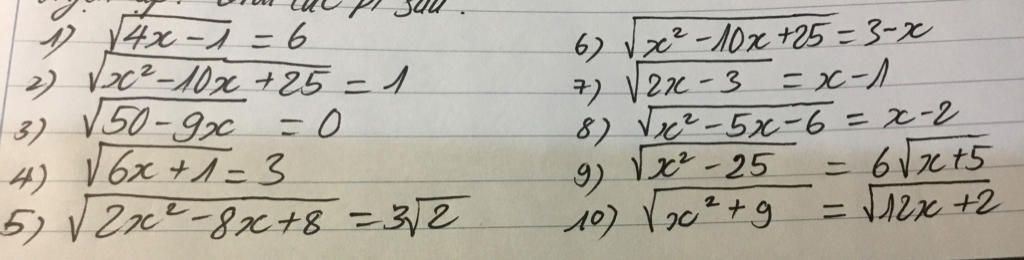 Giải các pt sau:
1) √(4x-1) = 6
2) √(x²-10x+25) = 1
3) √(50-9x) = 0
4) √(6x+1) = 3
5) √(2x²-8x+8) = 3√2
6) √(x²-10x+25) = 3-x
7) √(2x-3) = x-1
8) √(x²-5x-6) = x-2
9) √(x²-25) = 6√(x+5)
10) √(x²+9) = √(12x+2)